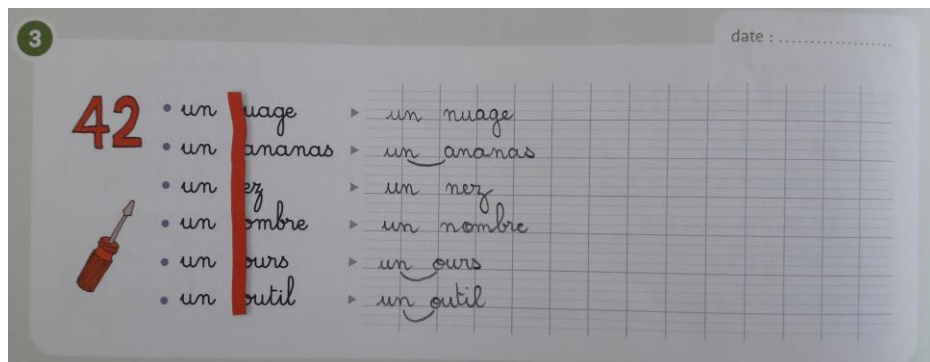 3
date : ....................
42
• un uage ▸ un nuage
• un ananas ▸ un ananas
• un ez ▸ un nez
• un ombre ▸ un nombre
• un ours ▸ un ours
• un outil ▸ un outil